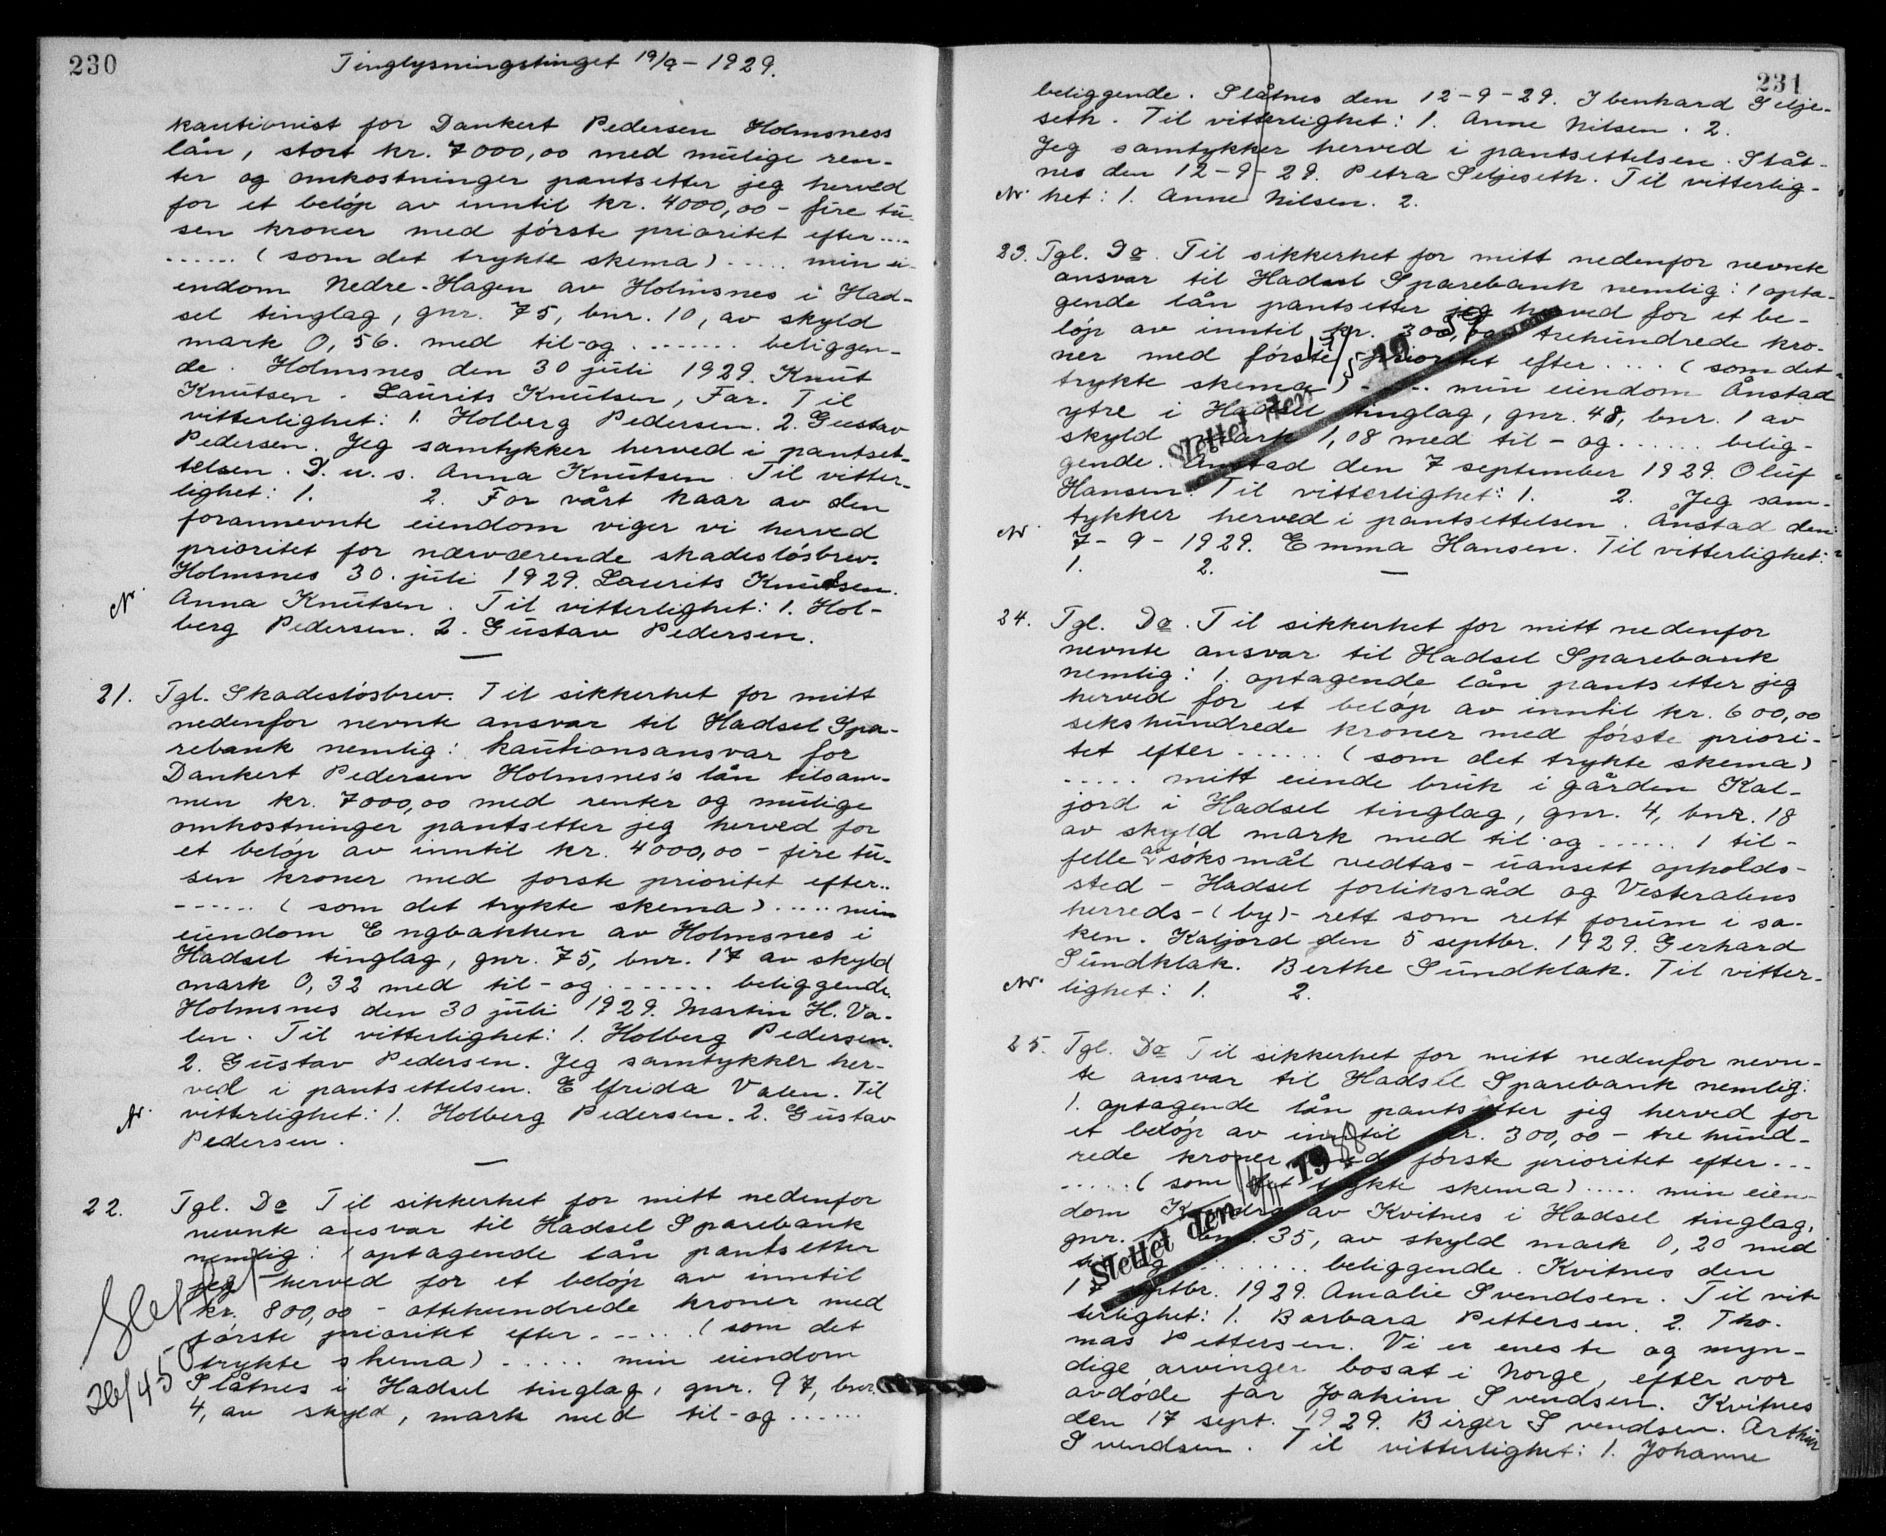 230
Tinglysningstinget 19/9 - 1929.
kautionist for Dankert Pedersen Holmsness
lån, stort kr. 7000,00 med mulige ren-
ter og omkostninger pantsetter jeg herved
for et beløp av inntil kr. 4000,00 - fire tu-
sen kroner med første prioritet efter....
...... (som det trykte skema) ..... min ei-
endom Nedre-Hagen av Holmsnes i Had-
sel tinglag, gnr. 75, bnr. 10, av skyld
mark 0,56. med til-og ........ beliggen-
de. Holmsnes den 30 juli 1929. Knut
Knutsen. Laurits Knutsen, Far. Til
vitterlighet: 1. Holberg Pedersen. 2. Gustav
Pedersen. Jeg samtykker herved i pantset-
telsen. D. u. s. Anna Knutsen. Til vitter-
lighet: 1. 2. For vårt kaar av den
forannevnte eiendom viger vi herved
prioritet for nærværende skadesløsbrev.
Holmsnes 30. juli 1929. Laurits Knudsen.
Anna Knutsen. Til vitterlighet: 1. Hol-
berg Pedersen. 2. Gustav Pedersen.
21. Tgl. Skadesløsbrev. Til sikkerhet for mitt
nedenfor nevnte ansvar til Hadsel Spa-
rebank nemlig: kautionsansvar for
Dankert Pedersen Holmsnes's lån tilsam-
men kr. 7000,00 med renter og mulige
omkostninger pantsetter jeg herved for
et beløp av inntil kr. 4000,00 - fire tu-
sen kroner med første prioritet efter..
------ (som det trykte skema) ..... min
eiendom Engbakken av Holmsnes i
Hadsel tinglag, gnr. 75, bnr. 17 av skyld
mark 0,32 med til-og ....... beliggende.
Holmsnes den 30 juli 1929. Martin H. Va-
len. Til vitterlighet: 1. Holberg Pedersen.
2. Gustav Pedersen. Jeg samtykker her-
ved i pantsettelsen. Elfrida Valen. Til
vitterlighet: 1. Holberg Pedersen. 2. Gustav
Pedersen.
22. Tgl. Do Til sikkerhet for mitt nedenfor
nevnte ansvar til Hadsel Sparebank
nemlig: 1 optagende lån pantsetter
jeg herved for et beløp av inntil
kr. 800,00 - ottehundrede kroner med
første prioritet efter...... (som det
trykte skema) ...... min eiendom
Slåtnes i Hadsel tinglag, gnr. 97, bnr.
4, av skyld, mark med til-og ......
Slettet
26/4 50
231
beliggende. Slåtnes den 12-9-29. Ibenhard Selje-
seth. Til vitterlighet: 1. Anne Nilsen. 2.
Jeg samtykker herved i pantsettelsen. Slåt-
nes den 12-9-29. Petra Seljeseth. Til vitterlig-
het: 1. Anne Nilsen. 2.
23. Tgl. Do. Til sikkerhet for mitt nedenfor nevnte
ansvar til Hadsel Sparebank nemlig: 1 opta-
gende lån pantsetter jeg herved for et be-
løp av inntil kr. 300,00 trehundrede kro-
ner med første prioritet efter .... (som det
trykte skema) ..... min eiendom Ånstad
ytre i Hadsel tinglag, gnr. 48, bnr. 1 av
skyld mark 1,08 med til-og ...... belig-
gende. Ånstad den 7 september 1929. Oluf
Hansen. Til vitterlighet: 1. 2. Jeg sam-
tykker herved i pantsettelsen. Ånstad den
7-9-1929. Emma Hansen. Til vitterlighet:
1. 2.
Slettet den 19
24. Tgl. Do. Til sikkerhet for mitt nedenfor
nevnte ansvar til Hadsel Sparebank
nemlig: 1. optagende lån pantsetter jeg
herved for et beløp av inntil kr. 600,00
sekshundrede kroner med første priori-
tet efter ...... (som det trykte skema)
..... mitt eiende bruk i gården Kal-
jord i Hadsel tinglag, gnr. 4, bnr. 18
av skyld mark med til og ...... I til-
felle av søksmål vedtas - uansett opholds-
sted - Hadsel forliksråd og Vesterålens
herreds-(by)-rett som rett forum i sa-
ken. Kaljord den 5 septbr. 1929. Gerhard
Sundklak. Berthe Sundklak. Til vitter-
lighet: 1. 2.
25. Tgl. Do Til sikkerhet for mitt nedenfor nevn-
te ansvar til Hadsel Sparebank nemlig:
1. optagende lån pantsetter jeg herved for
et beløp av inntil kr. 300,00 - tre hund-
rede kroner med første prioritet efter ...
...... (som det trykte skema) ..... min eien-
dom av Kvitnes i Hadsel tinglag,
gnr. bnr. 35, av skyld mark 0,20 med
........ beliggende. Kvitnes den
17 septbr. 1929. Amalie Svendsen. Til vit-
terlighet: 1. Barbara Pettersen. 2. Tho-
mas Pettersen. Vi er eneste og myn-
dige arvinger bosat i Norge, efter vor
avdøde far Joakim Svendsen. Kvitnes
den 17 sept. 1929. Birger Svendsen. Arthur
Svendsen. Til vitterlighet: 1. Johanne
Slettet den 19